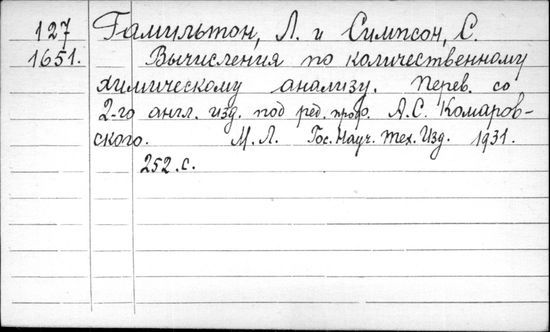 127 Гамильтон, Л. и Симпсон, С.
1651. Вычисления по количественному
химическому анализу. Перев. со
2-го англ. изд. под ред. проф. А.С. Комаров-
ского. М.Л. Гос. Науч. Тех. Изд. 1931.
252 с.